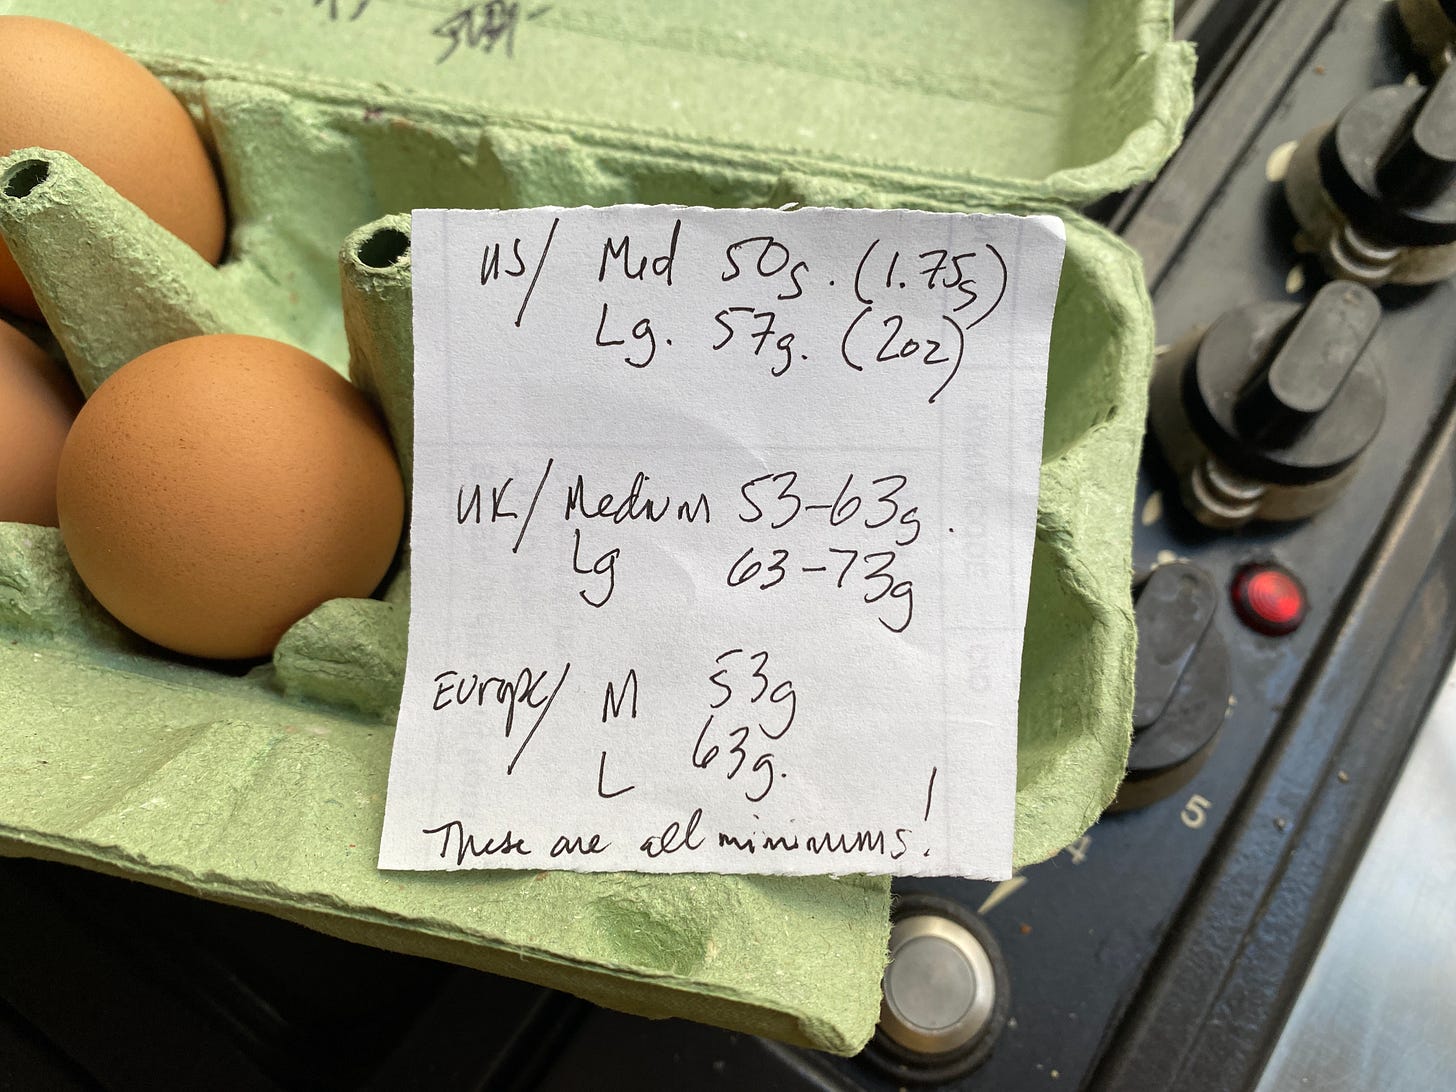 US/ Med 50g. (1.75g)
Lg. 57g. (2oz)
UK/ Medium 53-63g.
Lg 63-73g
Europe/ M 53g
L 63g.
These are all minimums!
5
4